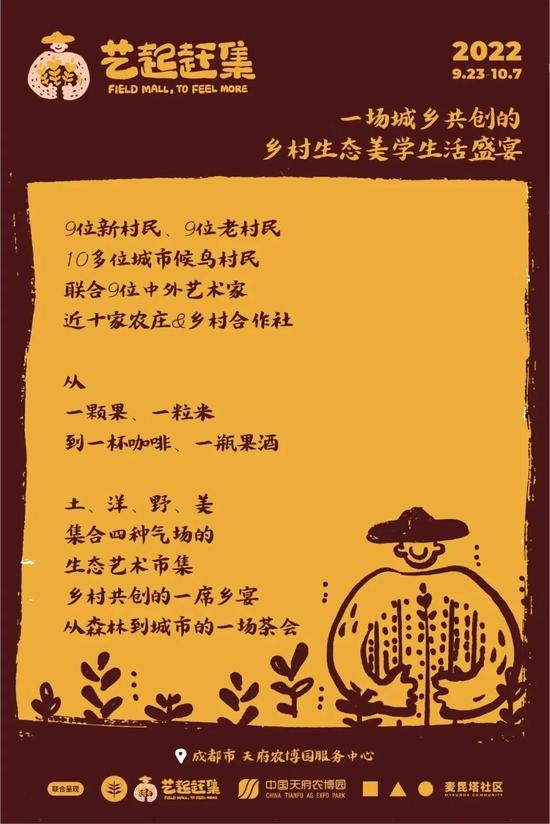 艺起赶集
FIELD MALL, TO FEEL MORE
2022
9.23-10.7
一场城乡共创的
乡村生态美学生活盛宴
9位新村民、9位老村民
10多位城市候鸟村民
联合9位中外艺术家
近十家农庄&乡村合作社
从
一颗果、一粒米
到一杯咖啡、一瓶果酒
土、洋、野、美
集合四种气场的
生态艺术市集
乡村共创的一席乡宴
从森林到城市的一场茶会
成都市 天府农博园服务中心
联合呈现
艺起赶集
FIELD MALL, TO FEEL MORE
中国天府农博园
CHINA TIANFU AG EXPO PARK
麦昆塔社区